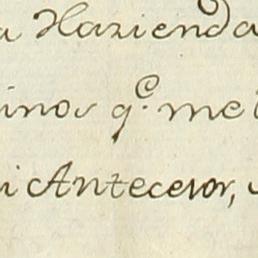 a Hazienda
inos q.^e me
i Antecesor,